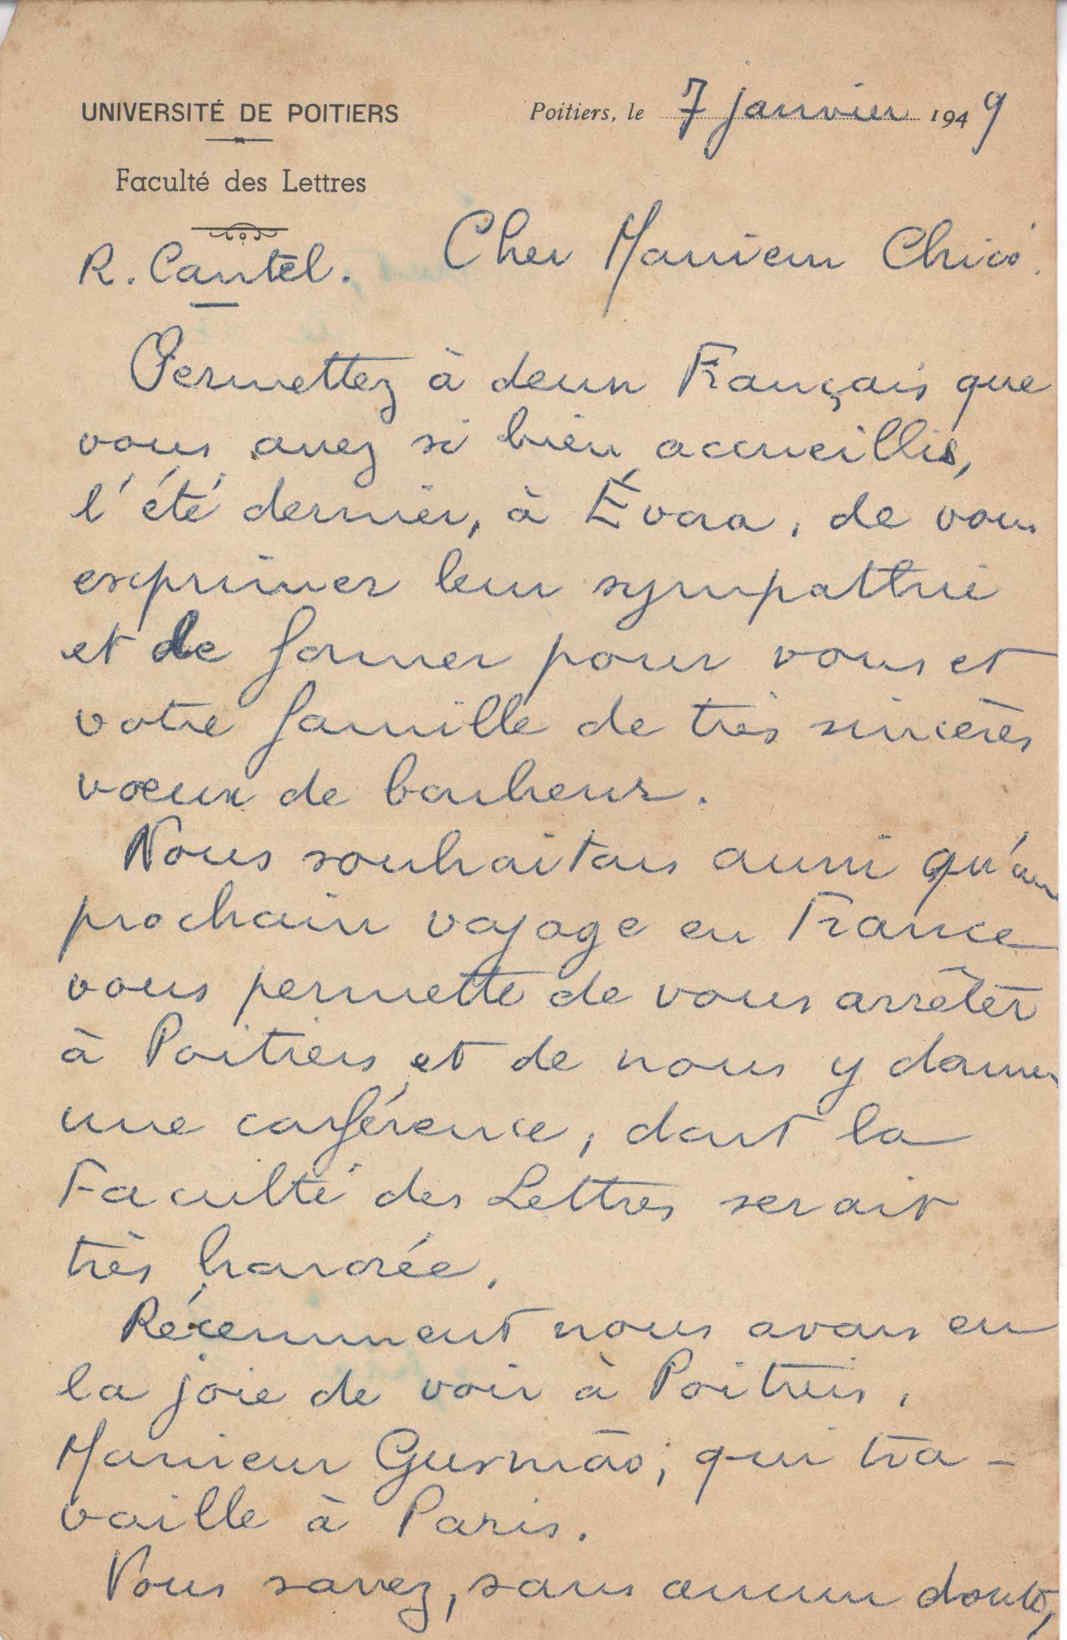 UNIVERSITÉ DE POITIERS
Poitiers, le 7 janvier 1949
Faculté des Lettres
R. Cantel.
Cher Monsieur Chicó.
Permettez à deux Français que
vous avez si bien accueillis,
l'été dernier, à Évora, de vous
exprimer leur sympathie
et de former pour vous et
votre famille de très sincères
voeux de bonheur.
Nous souhaitons aussi qu'un
prochain voyage en France
vous permette de vous arrêter
à Poitiers et de nous y donner
une conférence, dont la
Faculté des Lettres serait
très honorée.
Récemment nous avons eu
la joie de voir à Poitiers,
Monsieur Gusmão, qui tra-
vaille à Paris.
Vous savez, sans aucun doute,